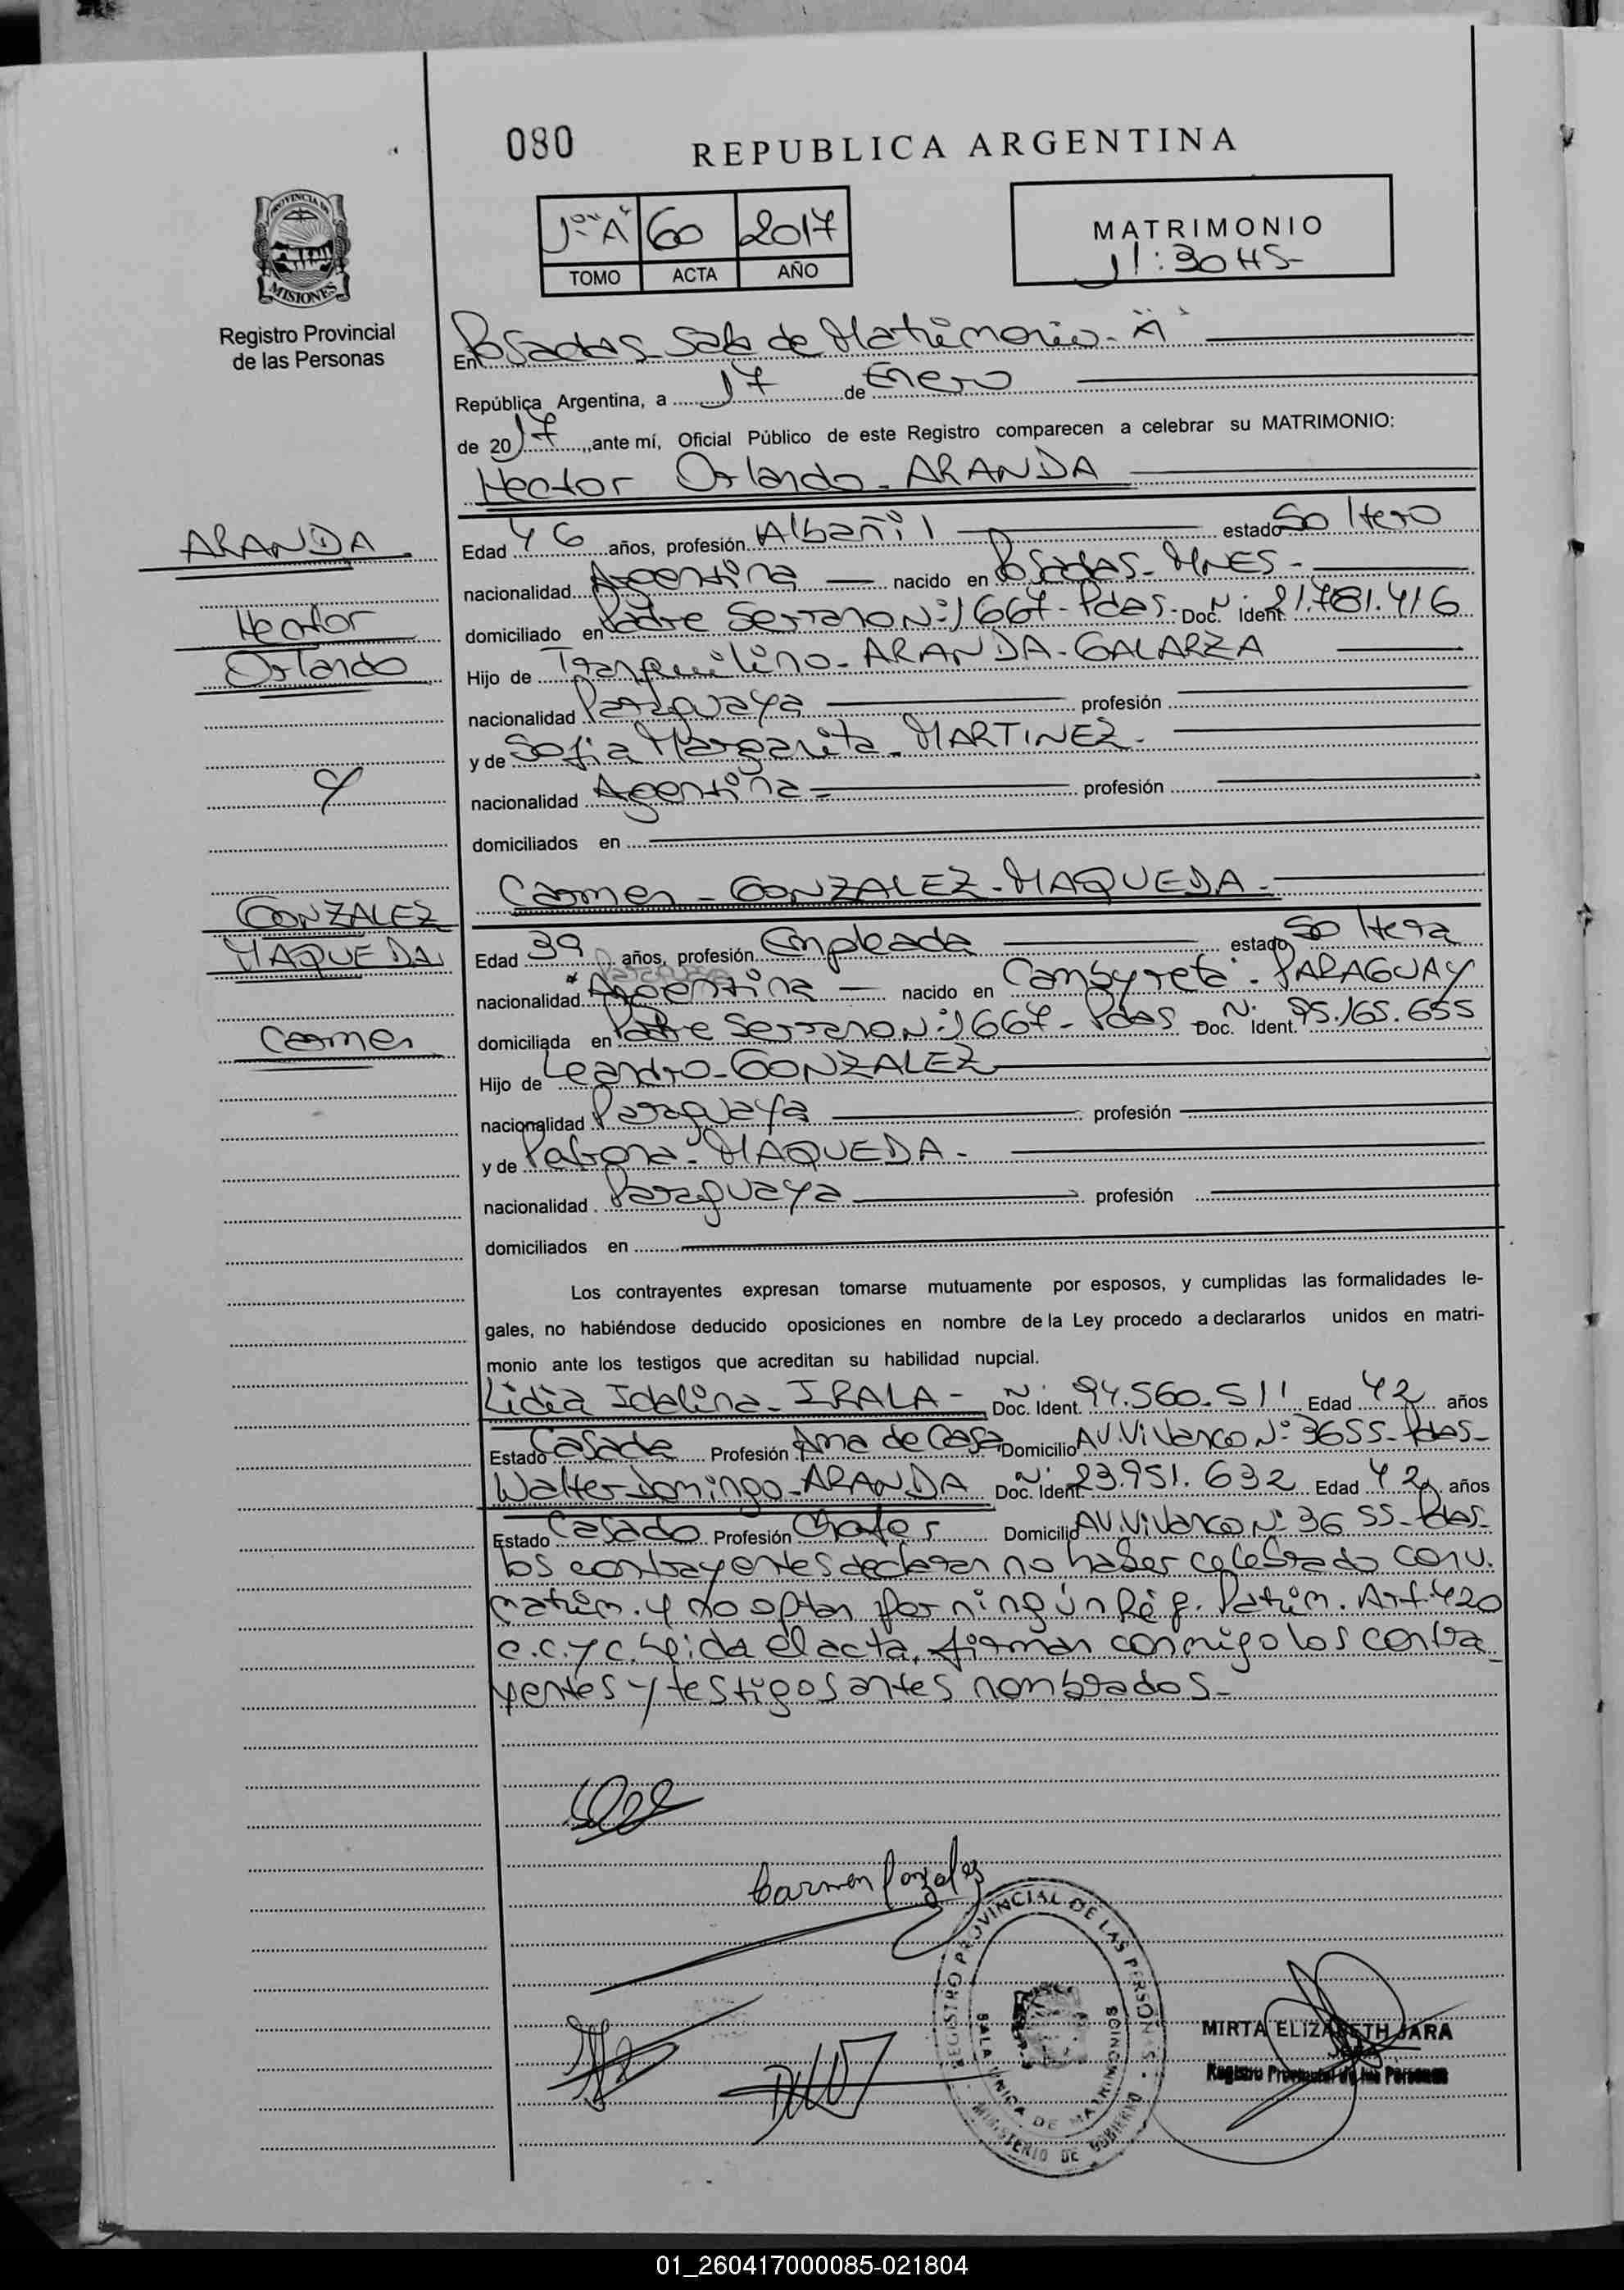 080 REPUBLICA ARGENTINA
1º "A" 60 2017
TOMO ACTA AÑO
MATRIMONIO
11:30 HS-
PROVINCIA DE
MISIONES
Registro Provincial
de las Personas
En Posadas-Sala de Matrimonio-"A"
República Argentina, a 17 de Enero
de 2017, ante mí, Oficial Público de este Registro comparecen a celebrar su MATRIMONIO:
Hector Orlando-ARANDA
ARANDA
Hector
Orlando
y
GONZALEZ
MAQUEDA
Carmen
Edad 46 años, profesión Albañil estado Soltero
nacionalidad Argentina nacido en Posadas-MNES-
domiciliado en Padre Serrano Nº 1667-Pdas- Doc. Nº Ident. 21.781.416
Hijo de Tranquilino-ARANDA-GALARZA
nacionalidad Paraguaya profesión
y de Sofia Margarita-MARTINEZ-
nacionalidad Argentina- profesión
domiciliados en
Carmen-GONZALEZ-MAQUEDA-
Edad 39 años, profesión Empleada estado Soltera
nacionalidad Argentina nacido en Cambyreta-PARAGUAY
domiciliada en Padre Serrano Nº 1667-Pdas- Doc. Nº Ident. 95.165.655
Hijo de Leandro-GONZALEZ
nacionalidad Paraguaya profesión
y de Patrona-MAQUEDA-
nacionalidad Paraguaya profesión
domiciliados en
Los contrayentes expresan tomarse mutuamente por esposos, y cumplidas las formalidades le-
gales, no habiéndose deducido oposiciones en nombre de la Ley procedo a declararlos unidos en matri-
monio ante los testigos que acreditan su habilidad nupcial.
Lidia Idalina-IRALA- Doc. Nº Ident. 94.560.511 Edad 42 años
Estado Casada Profesión Ama de Casa Domicilio AV. Vivanco Nº 3655-Pdas-
Walter Domingo-ARANDA Doc. Nº Ident. 23.951.632 Edad 42 años
Estado Casado Profesión Chofer Domicilio AV. Vivanco Nº 3655-Pdas-
los contrayentes declaran no haber celebrado conv.
matrim. y no optan por ningún Rég. Patrim. Art. 420
c.c.y c. Leida el acta, firman conmigo los contra_
yentes y testigos antes nombrados-
Carmen Gonzalez
REGISTRO PROVINCIAL DE LAS PERSONAS
SALA UNICA DE MATRIMONIOS
MINISTERIO DE GOBIERNO
MIRTA ELIZABETH JARA
Registro Provincial de las Personas
01_260417000085-021804